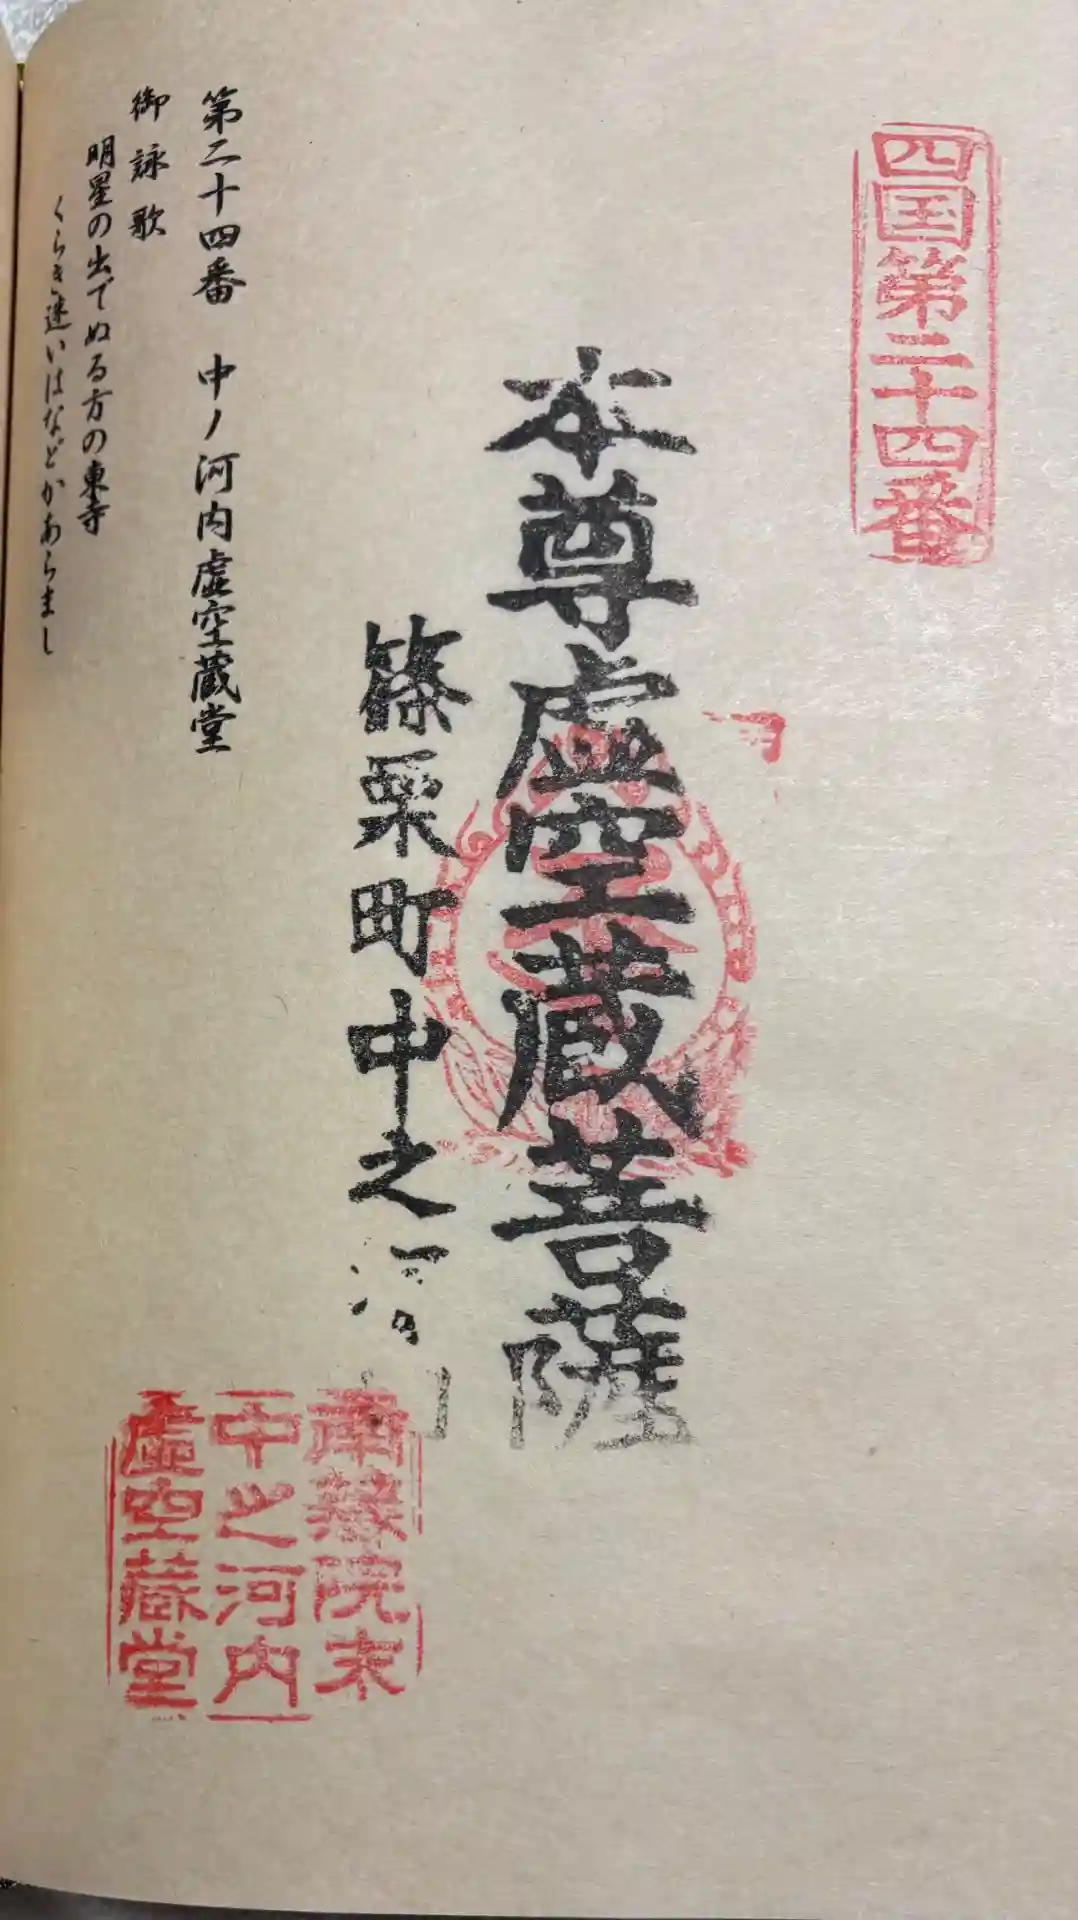 四国第二十四番
本尊虚空蔵菩薩
篠栗町中之河内
第二十四番 中ノ河内虚空蔵堂
御詠歌
明星の出でぬる方の東寺
くらき迷いはなどかあらまし
南蔵院末
中之河内
虚空蔵堂